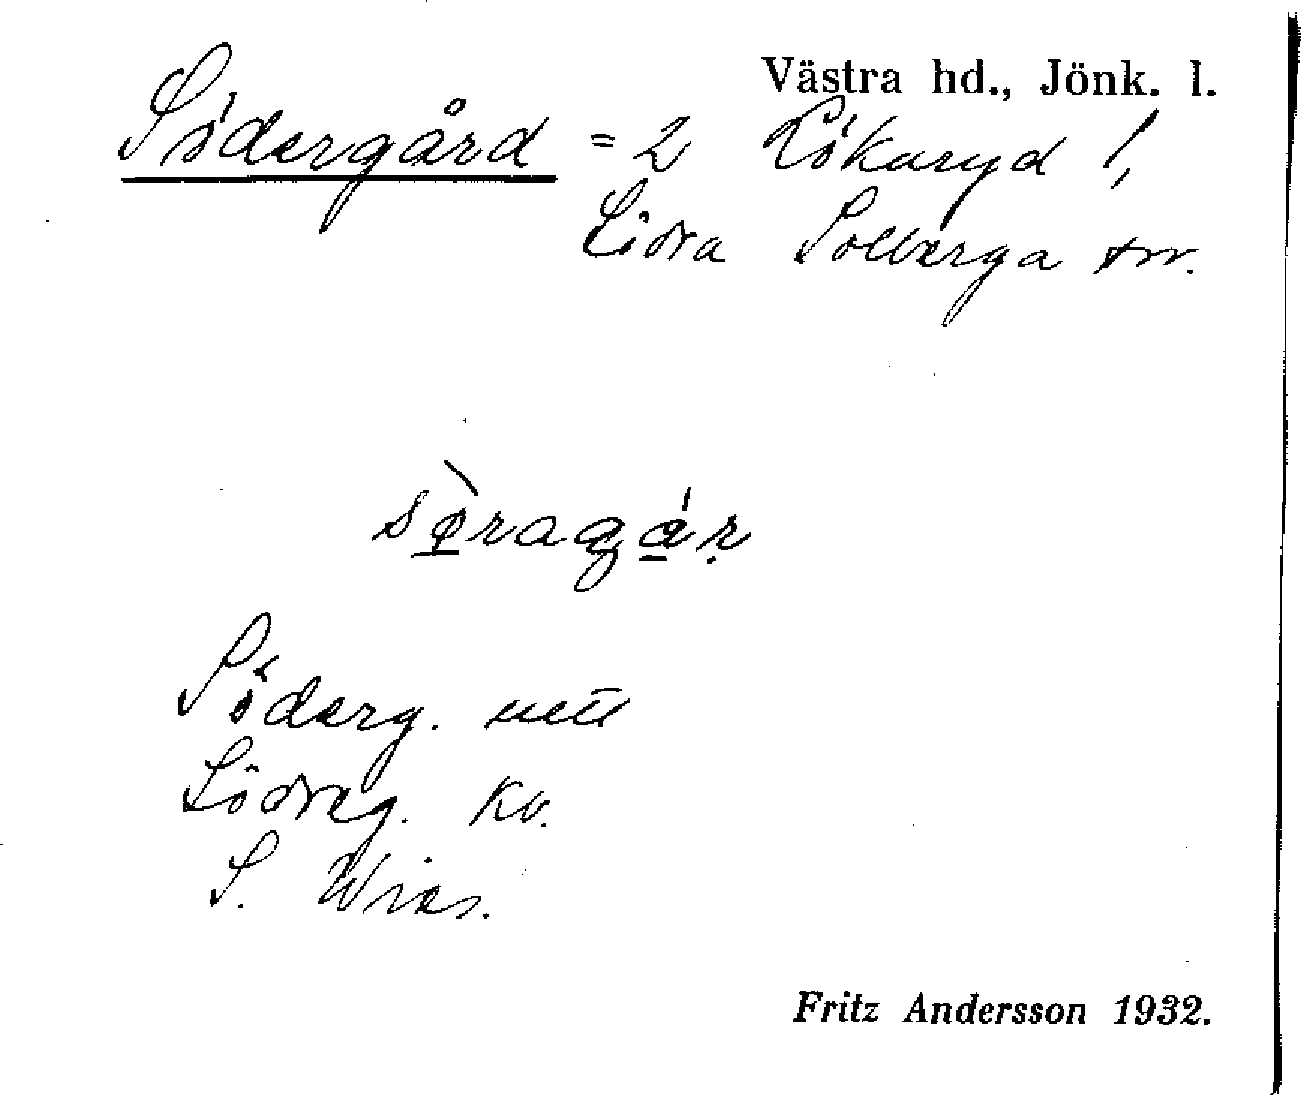 Västra hd., Jönk. l.
Södergård = 2 Rökaryd !,
Södra Solberga sn.
sø̀ragár
Söderg.
Södreg. Kv.
S. Wies.
Fritz Andersson 1932.